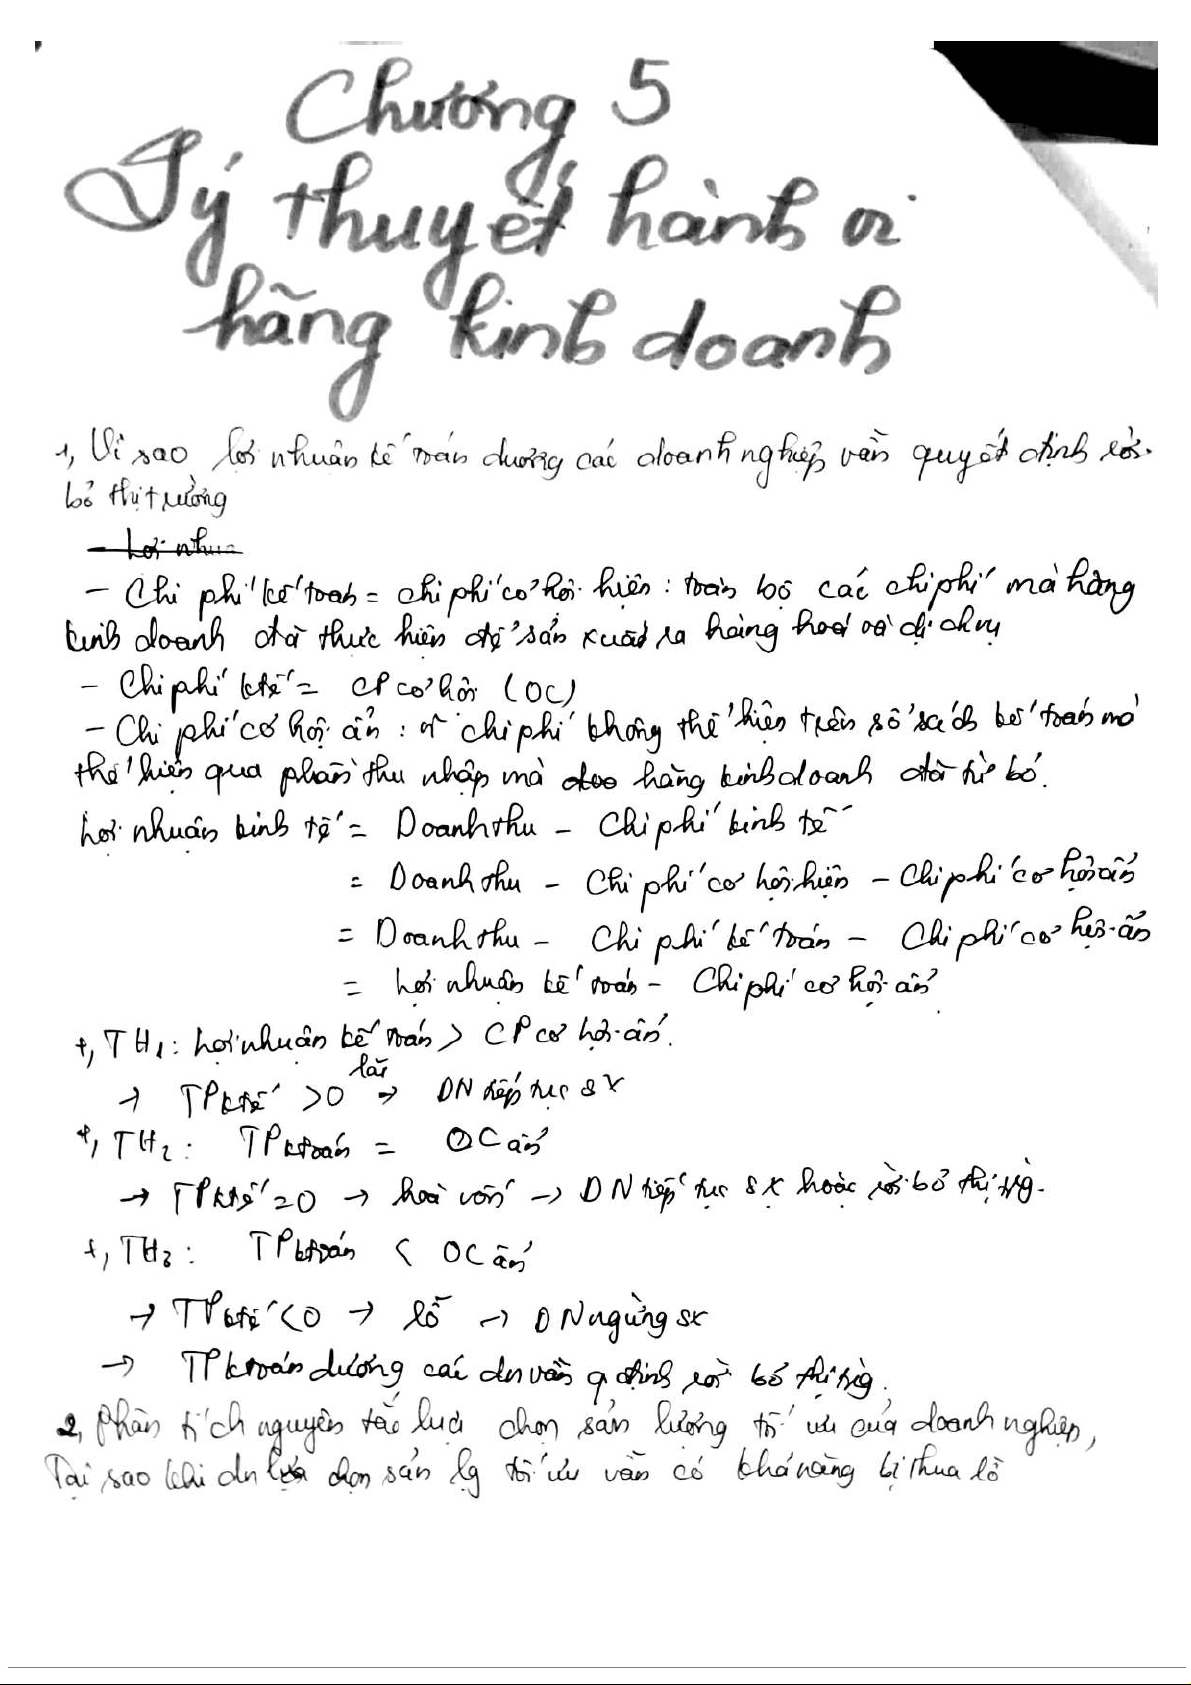 Chương 5
Lý thuyết hành vi
hãng kinh doanh
1, Vì sao lợi nhuận kế toán dương các doanh nghiệp vẫn quyết định rời
bỏ thị trường
- Lợi nhu
- Chi phí kế toán = chi phí cơ hội hiện : toàn bộ các chi phí mà hãng
kinh doanh đã thực hiện để sản xuất ra hàng hoá và dịch vụ
- Chi phí ktế = CP cơ hội (OC)
- Chi phí cơ hội ẩn : chi phí không thể hiện trên sổ sách kế toán mà
thể hiện qua phần thu nhập mà hãng kinh doanh đã từ bỏ.
Lợi nhuận kinh tế = Doanh thu - Chi phí kinh tế
= Doanh thu - Chi phí cơ hội hiện - Chi phí cơ hội ẩn
= Doanh thu - Chi phí kế toán - Chi phí cơ hội ẩn
= Lợi nhuận kế toán - Chi phí cơ hội ẩn
+, TH1 : Lợi nhuận kế toán > CP cơ hội ẩn.
→ TPktế > 0 lãi → DN tiếp tục SX
+, TH2 : TPktoán = OC ẩn
→ TPktế = 0 → hoà vốn → DN tiếp tục SX hoặc rời bỏ thị trg.
+, TH3 : TPktoán < OC ẩn
→ TPktế < 0 → lỗ → DN ngừng SX
→ TPktoán dương các dn vẫn q định rời bỏ thị trg.
2, Phân tích nguyên tắc lựa chọn sản lượng tối ưu của doanh nghiệp,
Tại sao khi dn lựa chọn sản lg tối ưu vẫn có khả năng bị thua lỗ